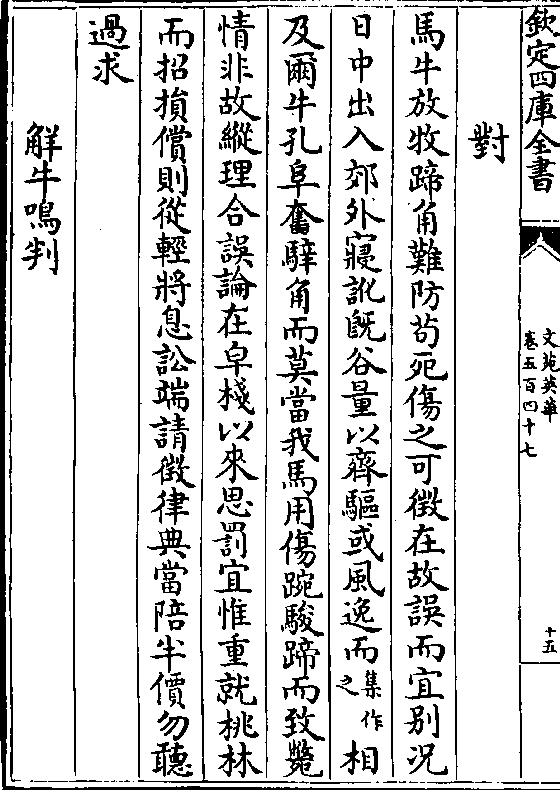 欽定四庫全書
文苑英華
卷五百四十七
十五
對
馬牛放牧蹄角難防苟死傷之可徵在故誤而宜别况
日中出入郊外寢訛旣谷量以齊驅或風逸而集作之相
及爾牛孔阜奮騂角而莫當我馬用傷踠駿蹄而致斃
情非故縱理合誤論在皁棧以來思罰宜惟重就桃林
而招損償則從輕將息訟端請徵律典當陪半價勿聽
過求
觧牛鳴判